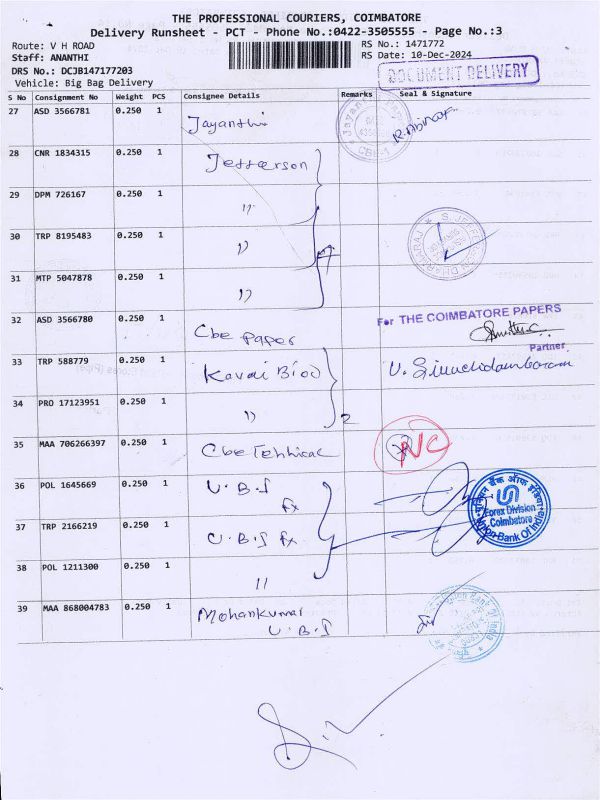 THE PROFESSIONAL COURIERS, COIMBATORE
Delivery Runsheet - PCT - Phone No.:0422-3505555 - Page No.:3
Route: V H ROAD
RS No.: 1471772
Staff: ANANTHI
RS Date: 10-Dec-2024
DRS No.: DCJB147177203
Vehicle: Big Bag Delivery
DOCUMENT DELIVERY
S No Consignment No Weight PCS Consignee Details Remarks Seal & Signature
27 ASD 3566781 0.250 1 Jayanthi
CBE-1
28 CNR 1834315 0.250 1 Jefferson
29 DPM 726167 0.250 1 "
30 TRP 8195483 0.250 1 "
S. JEFFERSON DHARMARAJ
31 MTP 5047878 0.250 1 "
32 ASD 3566780 0.250 1 Cbe paper
For THE COIMBATORE PAPERS
Partner
33 TRP 588779 0.250 1 Kovai
34 PRO 17123951 0.250 1 " 2
35 MAA 706266397 0.250 1 Cbe
36 POL 1645669 0.250 1 U.B.I
fx
यूनियन बैंक ऑफ इंडिया
Forex Division
Coimbatore
Union Bank Of India
37 TRP 2166219 0.250 1 U.B.I fx
38 POL 1211300 0.250 1 "
39 MAA 868004783 0.250 1 Mohankumar
U.B.I
Union Bank Of India